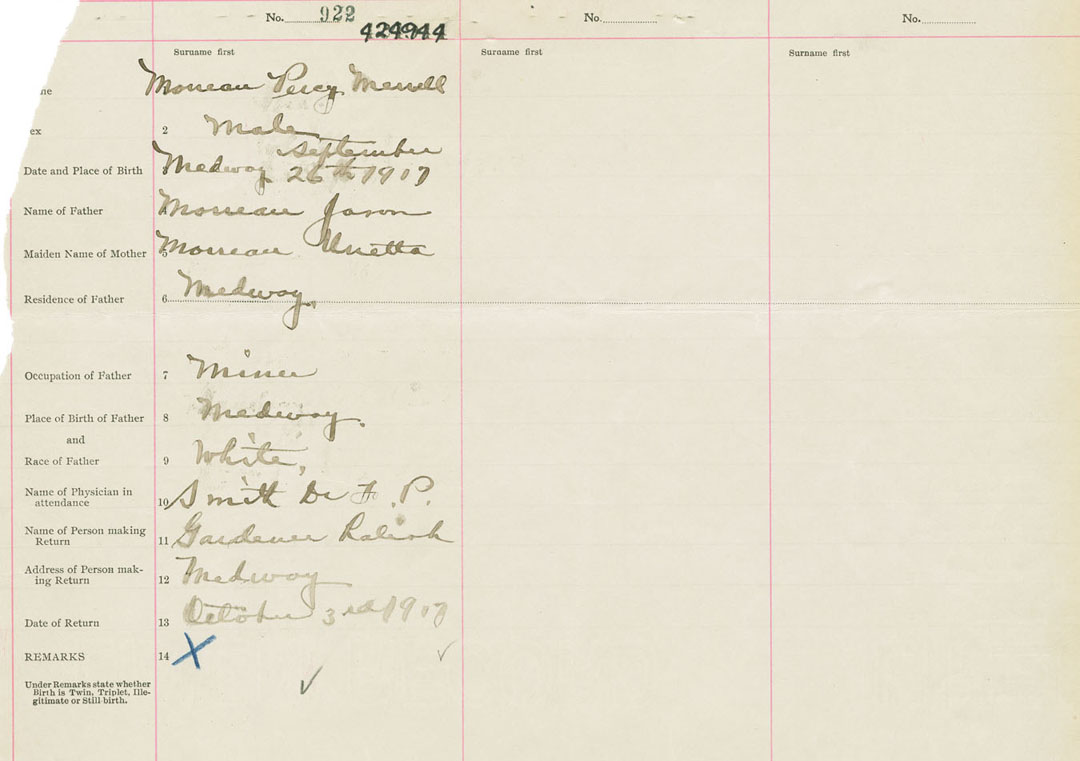 No. 922 No. No.
424944
Surname first Surname first Surname first
me Percy
ex 2 Male
September
Date and Place of Birth Medway 26th 1917
Name of Father Jason
Maiden Name of Mother 5
Residence of Father 6 Medway.
Occupation of Father 7 Miner
Place of Birth of Father 8 Medway.
and
Race of Father 9 White,
Name of Physician in
attendance 10 Smith Dr F. P.
Name of Person making
Return 11 Gardener
Address of Person mak-
ing Return 12 Medway
Date of Return 13 October 3rd 1917
REMARKS 14 X
Under Remarks state whether
Birth is Twin, Triplet, Ille-
gitimate or Still-birth.